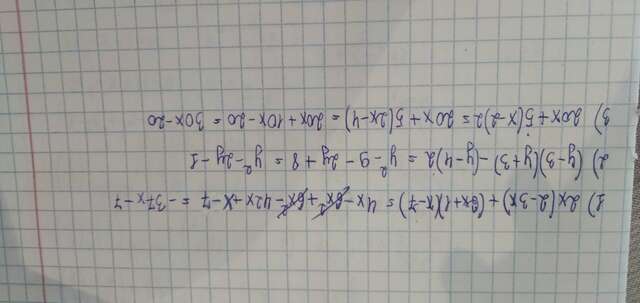 1) 2x(2-3x)+(6x+1)(x-7)=4x-6x²+6x²-42x+x-7 = -37x-7
2) (y-3)(y+3)-(y-4)2 = y²-9-2y+8 = y²-2y-1
3) 20x+5(x-2)2=20x+5(2x-4)=20x+10x-20=30x-20